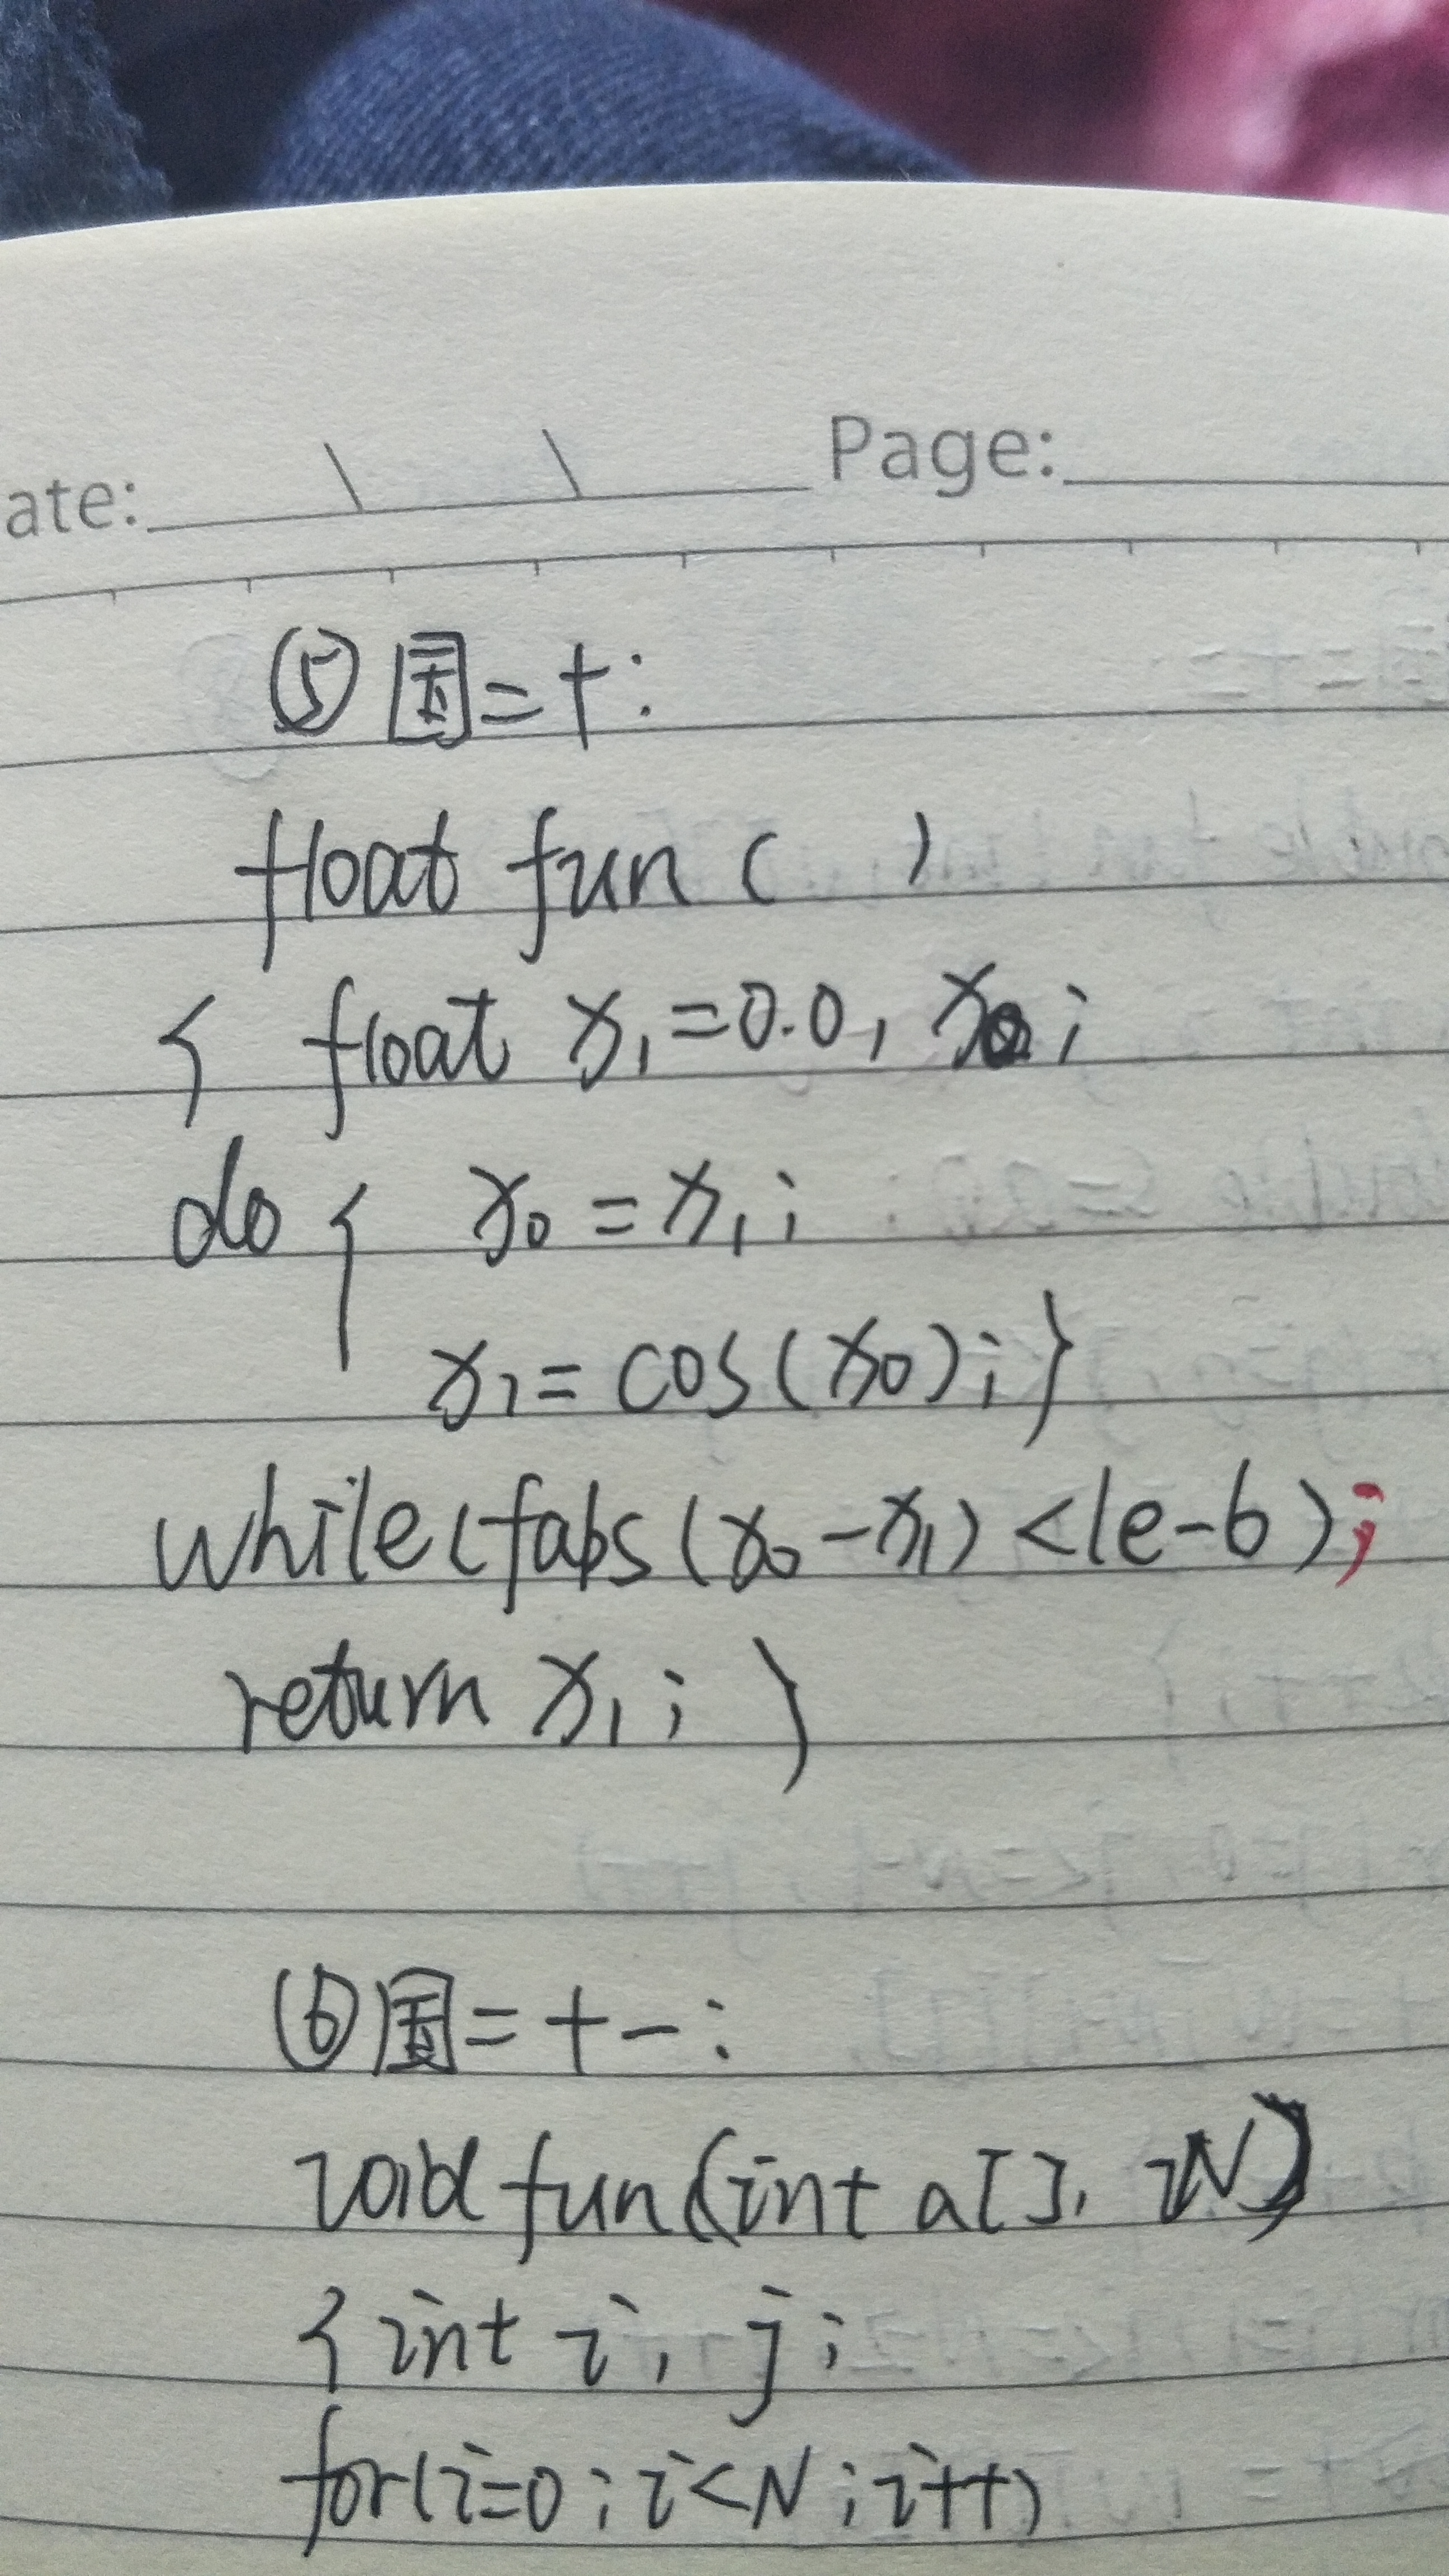 ate: Page:
⑤ 国二十:
float fun ( )
{ float x₁=0.0, x₀;
do { x₀ = x₁;
x₁= cos(x₀);}
while(fabs(x₀-x₁)<1e-6);
return x₁; }
⑥ 国二十一:
void fun(int a[], N)
{int i, j;
for(i=0;i<N;i++)